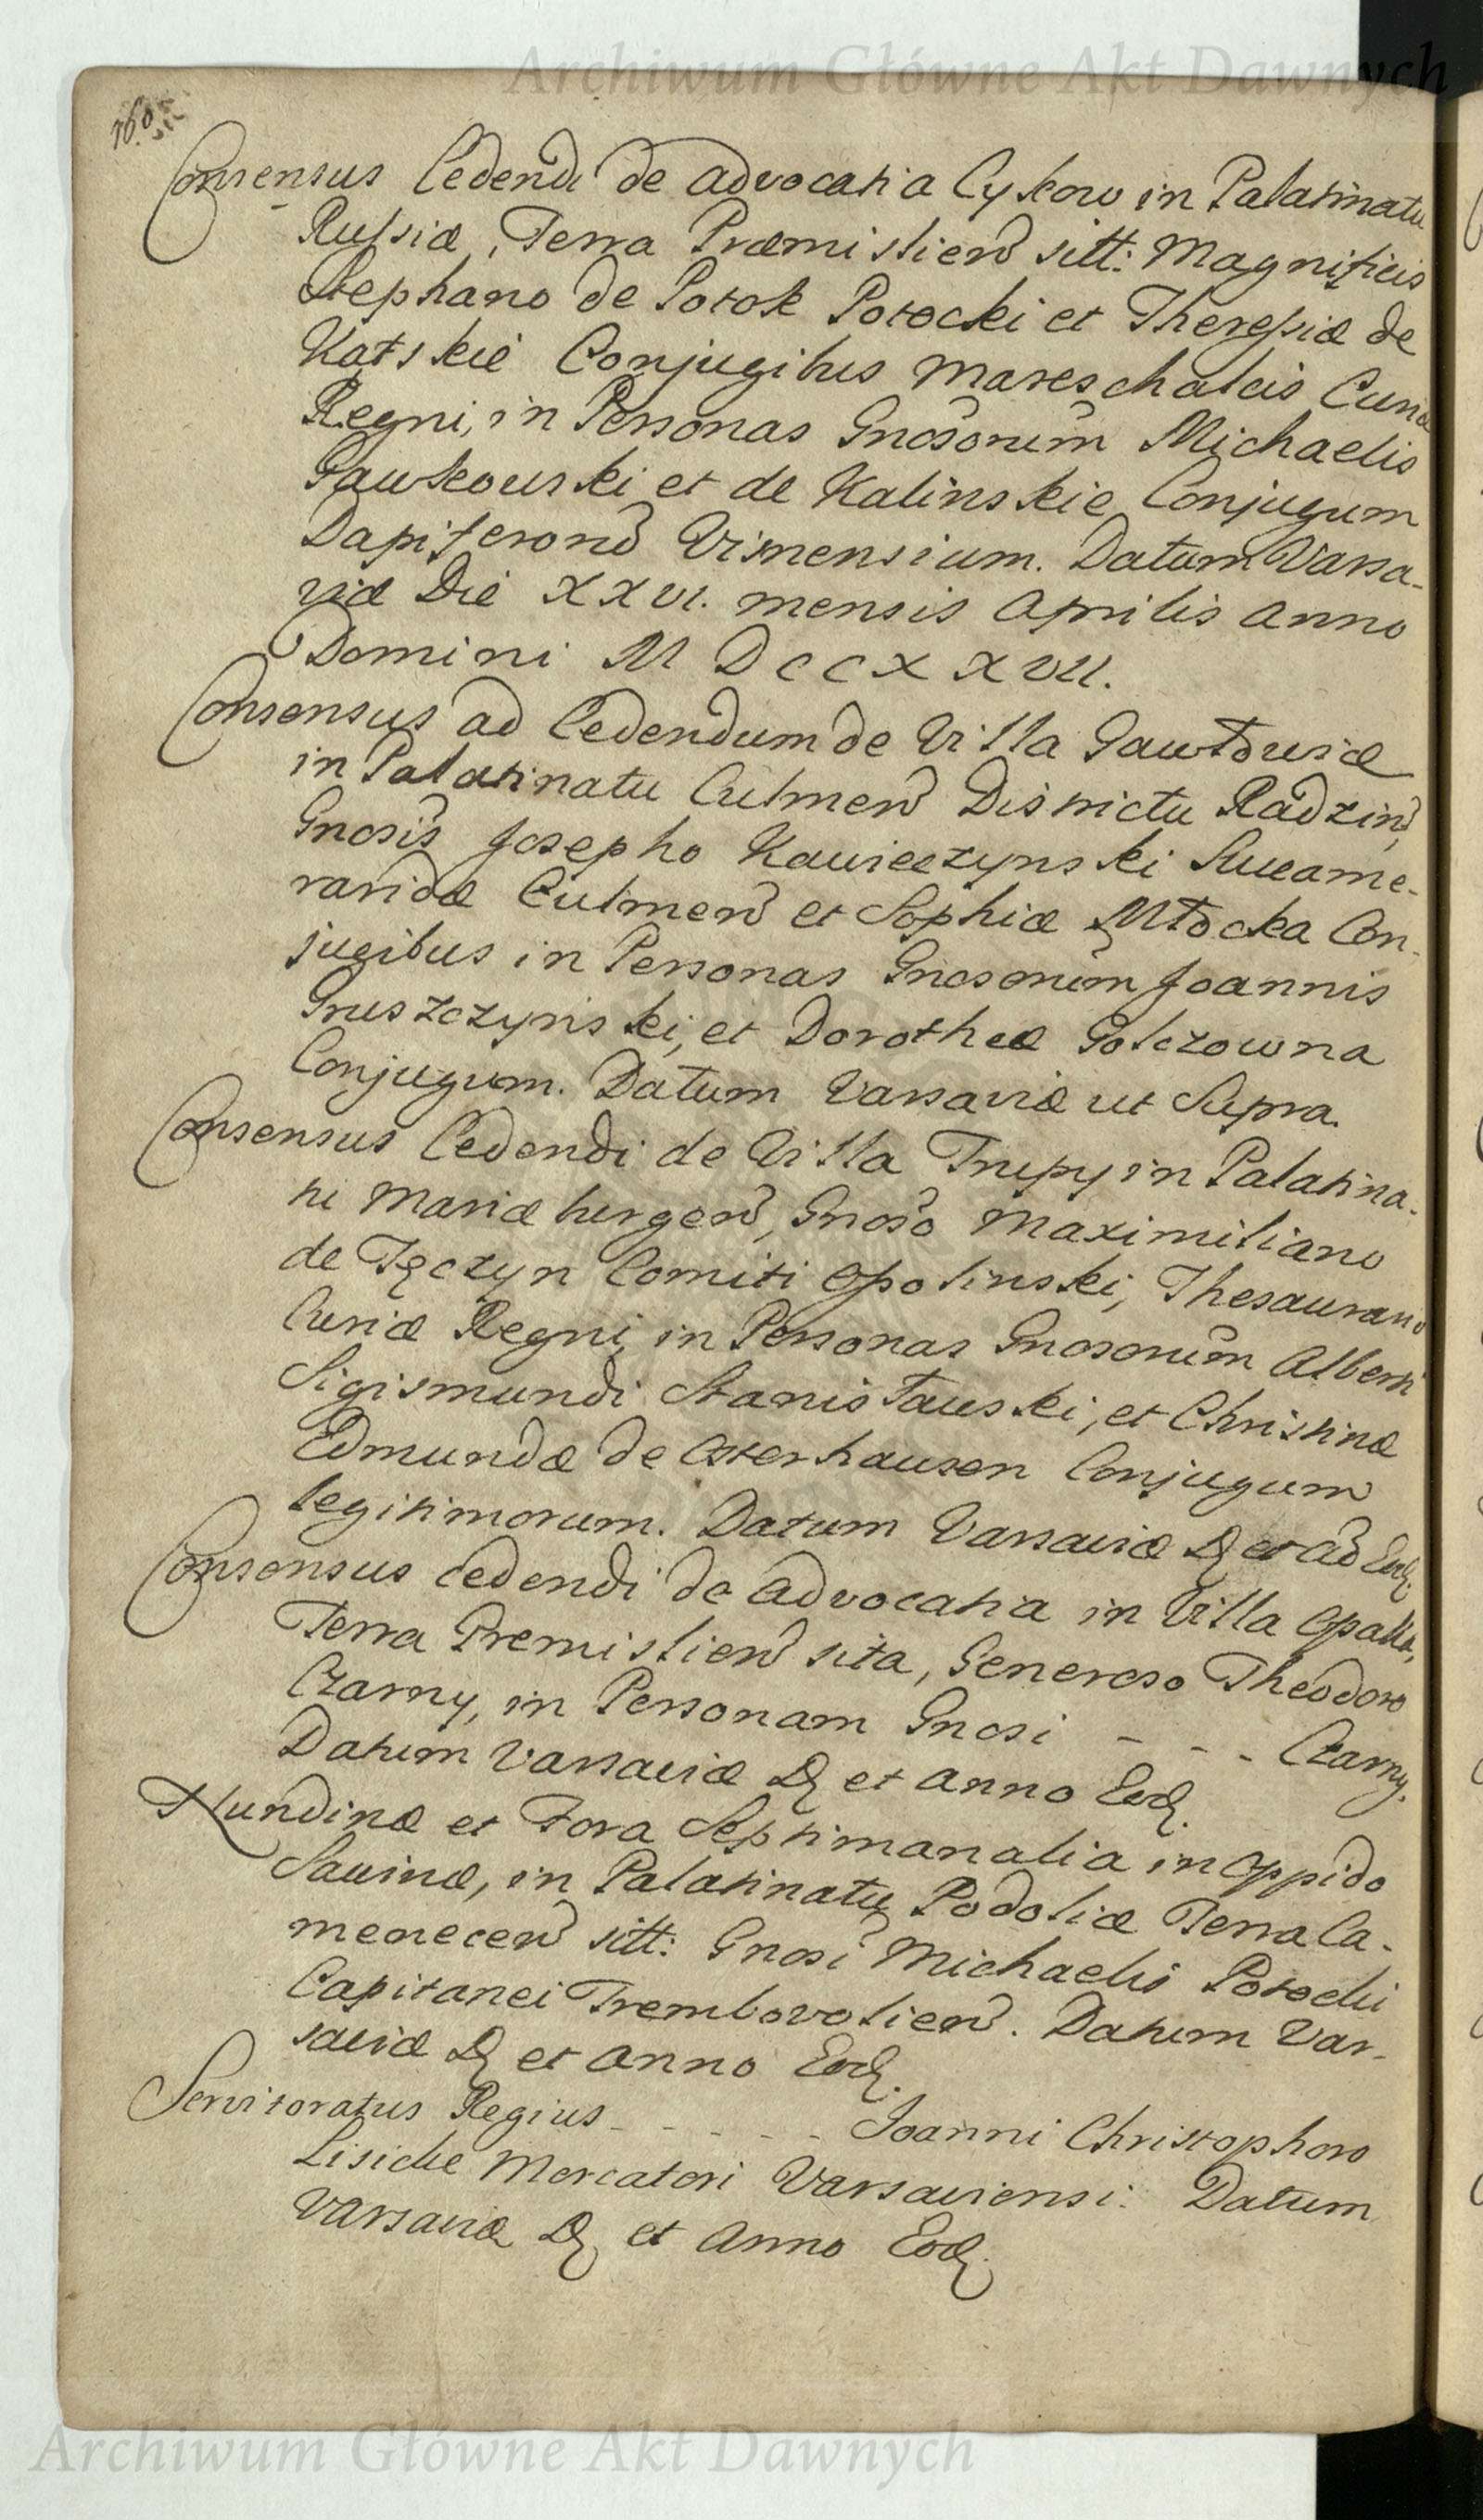 Archiwum Główne Akt Dawnych
160
Consensus Cedendi de advocatia Cykow in Palatinatu
Russiæ, Terra Præmislien sitt: Magnificis
Stephano de Potok Potocki et Theresiæ de
Katskie Conjugibus Mareschalcis Curiæ
Regni, in Personas Gnosorum Michaelis
Pawkowski et de Kalinskie Conjugum
Dapiferorũ Visnensium. Datum Varsa-
viæ Die XXVI. mensis Aprilis Anno
Domini MDCCXXVII.
Consensus ad Cedendum de Villa Gawłowiæ
in Palatinatu Culmen Districtu Radzin,
Gnosis Josepho Kawieczynski Succame-
raridæ Culmen et Sophiæ Młocka Con-
jugibus in Personas Gnosorum Joannis
Gruszczynski, et Dorotheæ Golczowna
Conjugum. Datum Varsaviæ ut Supra.
Consensus Cedendi de Villa Trupy in Palatina-
tu Mariæburgen, Gnoso Maximiliano
de Tęczyn Comiti Opolinski, Thesaurario
Curiæ Regni, in Personas Gnosorum Alberti
Sigismundi Stanisławski, et Christinæ
Edmundæ de Osterhausen Conjugum
legitimorum. Datum Varsaviæ D et aõ Eod.
Consensus cedendi de advocatia in Villa Opaka,
Terra Premislien sita, Generoso Theodoro
Czarny, in Personam Gnosi - - - Czarny.
Datum Varsaviæ D et anno Eod.
Nundinæ et Fora Septimanalia in Oppido
Savinæ, in Palatinatu Podoliæ Terra Ca-
menecen sitt: Gnosi Michaelis Potocki
Capitanei Trembovolien. Datum Var-
saviæ D et anno Eod.
Servitoratus Regius - - - - - Joanni Christophoro
Lisicke Mercatori Varsaviensi. Datum
Varsaviæ D et Anno Eod.
Archiwum Główne Akt Dawnych